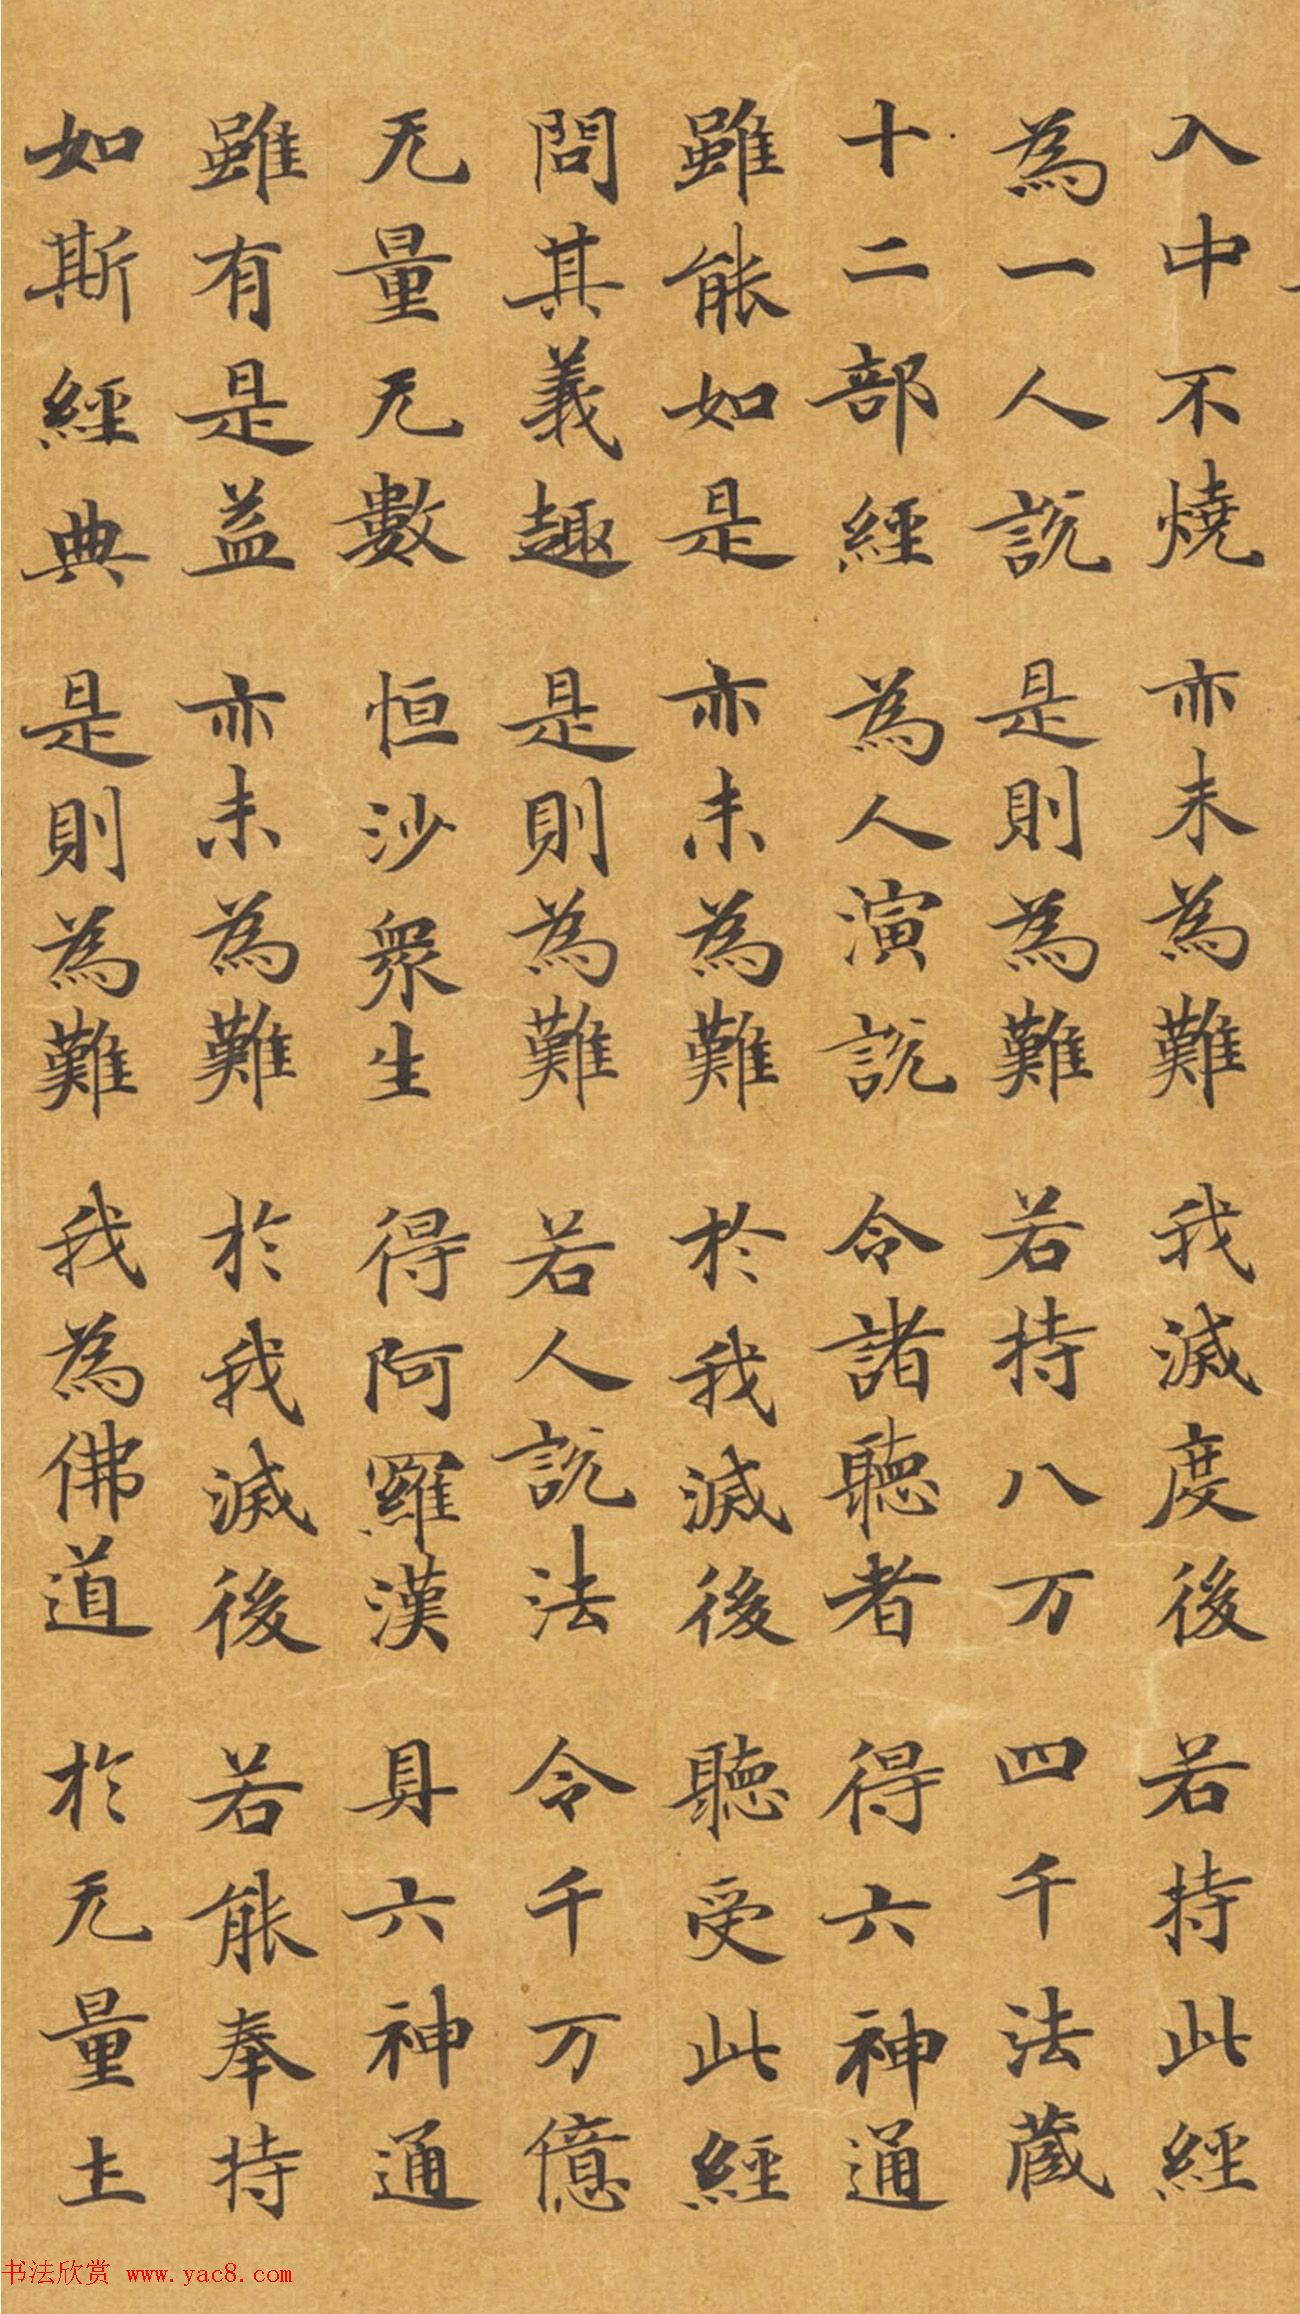 入中不燒 亦未為難 我滅度後 若持此經
為一人説 是則為難 若持八万 四千法蔵
十二部經 為人演説 令諸聽者 得六神通
雖能如是 亦未為難 於我滅後 聽受此經
問其義趣 是則為難 若人説法 令千万億
无量无數 恒沙衆生 得阿羅漢 具六神通
雖有是益 亦未為難 於我滅後 若能奉持
如斯經典 是則為難 我為佛道 於无量土
书法欣赏 www.yac8.com